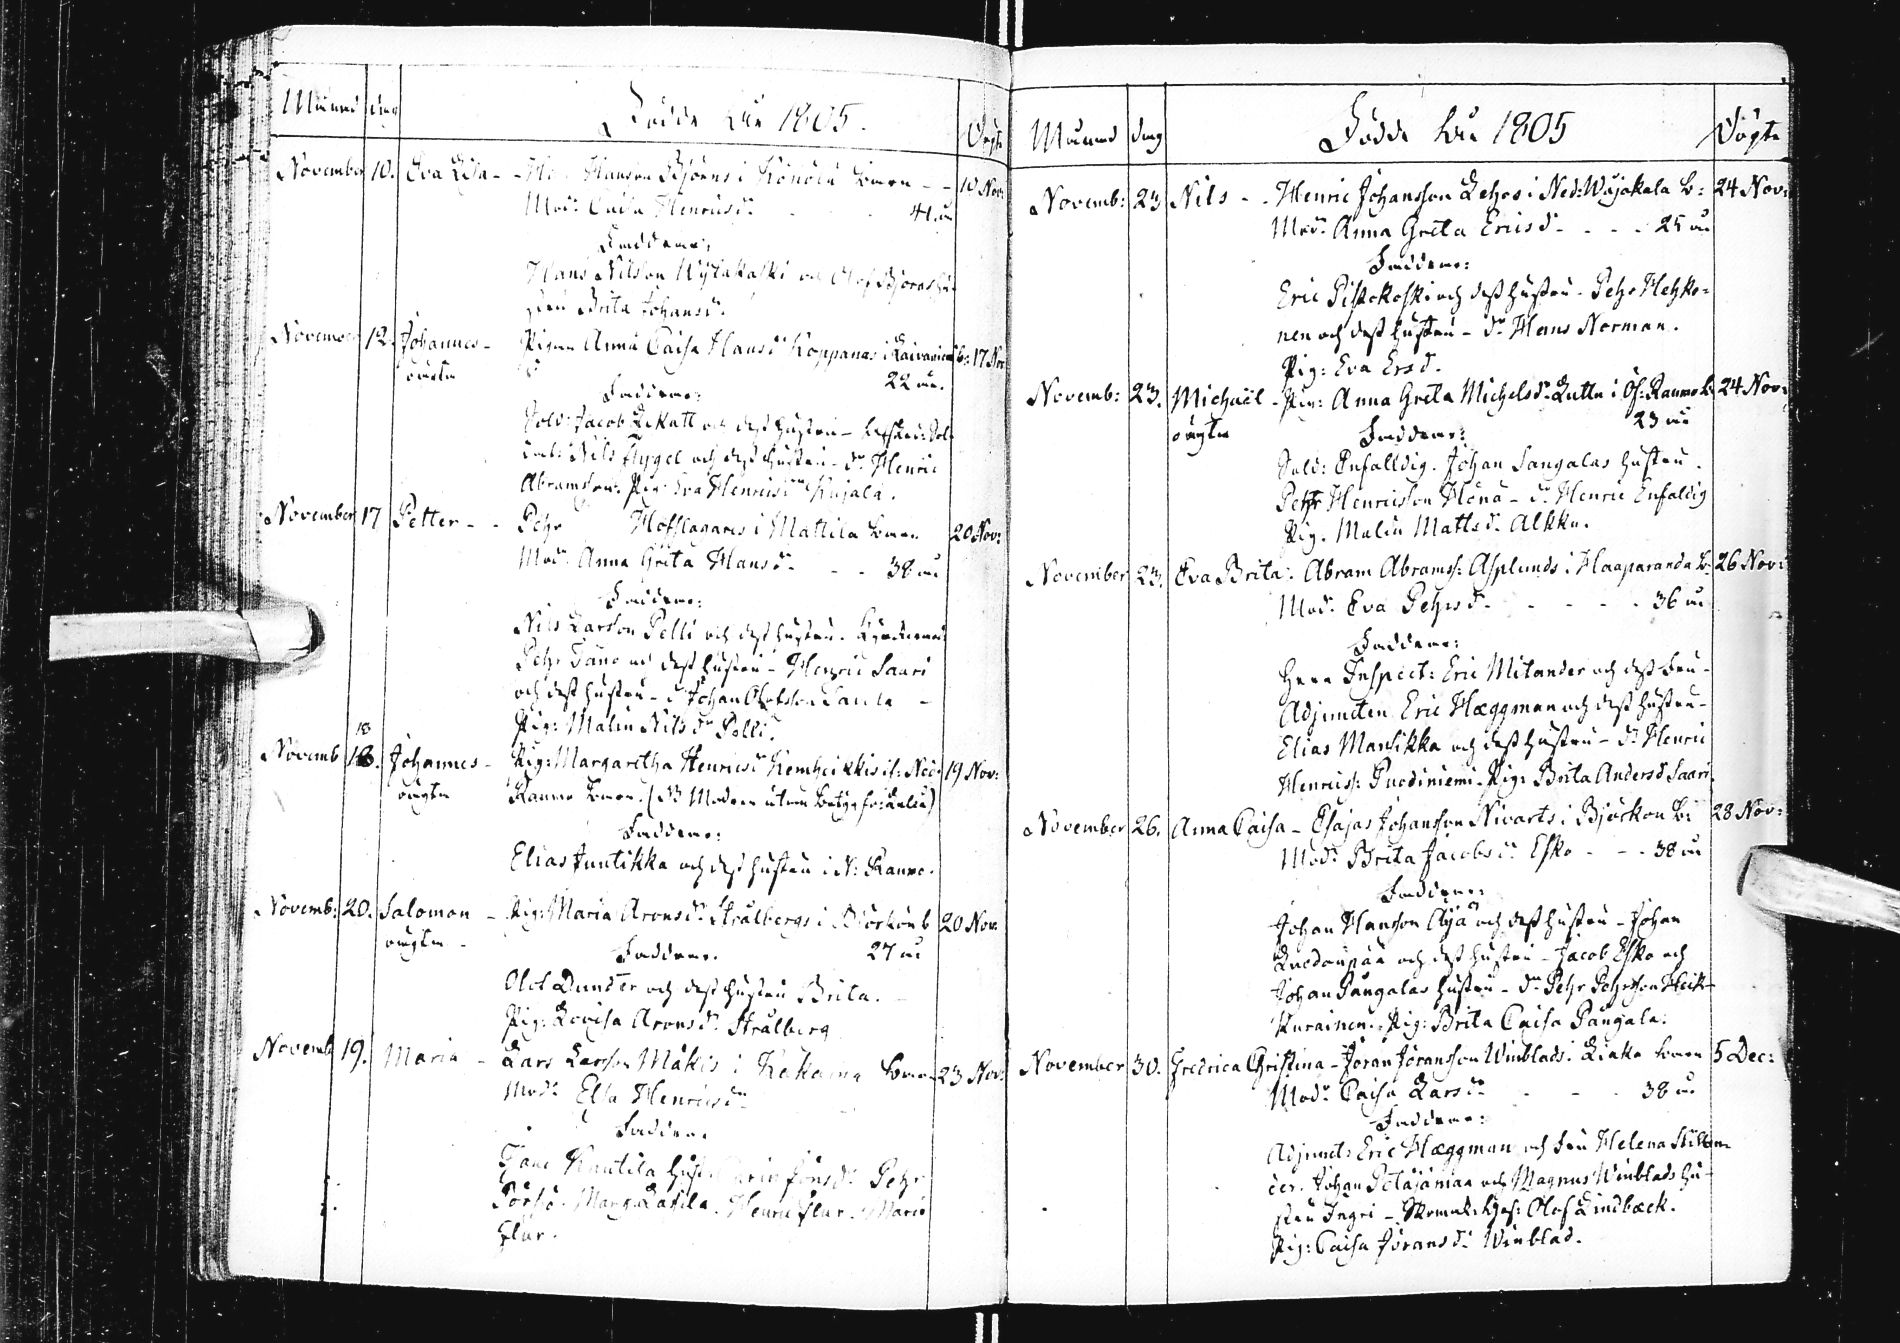 Månad dag Födde År 1805. Döpte
November 10. Eva Lisa - Hans Hanson Björns i Könölä Soocn - - 10 Nov:
Mod: Caisa Henricsdr 41 år
Faddrar:
Hans Nilsson Wylakoski och Olof Björns hu-
stru Brita Johansdr
November 12. Johannes - Pigan Anna Caisa Hansdr Koppanas i b: 17 Nov
oägta 22 år.
Faddrar:
Sold: Jacob och dess hustru - Sol-
dat: Nils Flygel och dess hustru - dr Henric
Abramsson. Pig: Eva Henricsdr Kujala.
November 17 Petter - - Pehr Hofslagares i Mattila 20 Nov:
Mod: Anna Greta Hansdr - - 38 år
Faddrar:
Nils Larsson Pelli och dess hustru.
Pehr och dess hustru - Henric Saari
och dess hustru - dr Johan Olofsson
Pig: Malin Nilsdr Pelli.
18
Novemb 18. Johannes - Pig: Margaretha Henricsdr Kemheikkis i Ned: 19 Nov:
oägta Raumo (NB Modren utom)
Faddrar:
Elias Juntikka och dess hustru i N: Raumo.
Novemb: 20. Salomon - Pig: Maria Aronsdr Strålbergs i Björkön b 20 Nov:
oägta - 27 år
Faddrar.
Olof Dunder och dess hustru Brita.
Pig: Lovisa Aronsdr Strålberg
Novemb 19. Maria - Lars Larsson Mäkis i Kakama 23 Nov:
Mod: Elsa Henricsdr
Faddrar.
Kantila hustr. Carin Jönsdr Pehr
Marg: Henric Flur. Maria
Flur.
Månad dag Födde År 1805 Döpte
Novemb: 23 Nils - - Henric Johansson Lehos i Ned: Wojakala b: 24 Nov:
Modr Anna Greta Ericsdr - - - 25 år
Faddrar:
Eric Piskokoski och dess hustru - Pehr Hetzko-
nen och dess hustru - dr Hans Norman.
Pig: Eva Ersdr
Novemb: 23. Michaël - Pig: Anna Greta Michelsdr i Öf: Raumo b: 24 Nov:
oägta 23 år
Faddrar:
Sold: Enfalldig. Johan Sangalas hustru.
Pehr Henricsson - dr Henric Enfaldig
Pig. Malin Mattsdr Alkku.
November 23. Eva Brita. Abram Abramss: Asplunds i Haaparanda b: 26 Nov:
Mod: Eva Pehrsdr - - - - 36 år
Faddrar:
Herr Inspect: Eric Mitander och dess Fru -
Adjuncten Eric Hæggman och dess hustru -
Elias Mansikka och dess hustru - dr Henric
Henricss: Puodiniemi. Pig: Brita Andersdr Saari.
November 26. Anna Caisa - Esajas Johansson Nivarts i Björkön b: 28 Nov:
Modr Brita Jacobsdr Esko - - - 38 år
Faddrar:
Johan Hansson Äijä och dess hustru - Johan
och dess hustru - Jacob Esko och
Johan Pangalas hustru - dr Pehr Pehrsson Heik-
Purainen. Pig: Brita Caisa Pangala.
November 30. Fredrica Christina - Jöran Jöransson Winblads i Liakka 5 Dec:
Modr Caisa Larsdr - - - 38 år
Faddrar:
Adjunct: Eric Hæggman och Fru Helena
Johan Petäjämaa och Magnus Winblads hu-
stru Ingri - Olof Lindbæck.
Pig: Caisa Jöransdr Winblad.